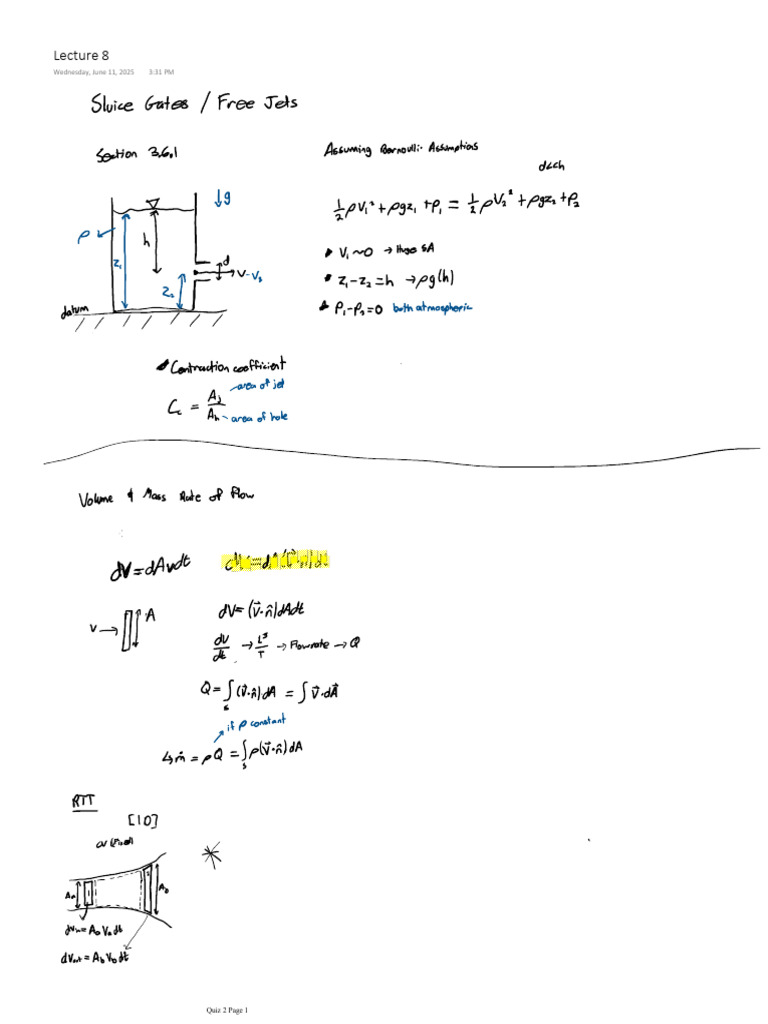 Lecture 8
Wednesday, June 11, 2025 3:31 PM
Sluice Gates / Free Jets
Section 3.6.1
Assuming Bernoulli Assumptions
d<<h
½ρV₁² + ρgz₁ + P₁ = ½ρV₂² + ρgz₂ + P₂
↓g
ρ
h
z₁
d
V-V₂
z₂
datum
V₁~0 → Huge SA
z₁-z₂=h → ρg(h)
P₁-P₂=0 both atmospheric
Contraction coefficient
C_c = A_j/A_h
area of jet
area of hole
Volume & Mass Rate of Flow
dV=dAvdt
V → A
dV=(v⃗·n̂)dAdt
dV/dt → L³/T → Flowrate → Q
Q=∫_s(v⃗·n̂)dA = ∫v⃗·dA⃗
if ρ constant
↳ṁ = ρQ = ∫_s ρ(v⃗·n̂)dA
RTT
[1D]
A_a
1
2
A_b
dV_out = A_b V_b dt
Quiz 2 Page 1